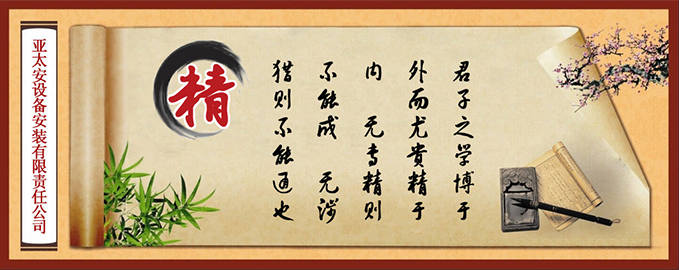 亚太安设备安装有限责任公司
精
君子之学博于
外而尤贵精于
内 无专精则
不能成 无涉
猎则不能通也